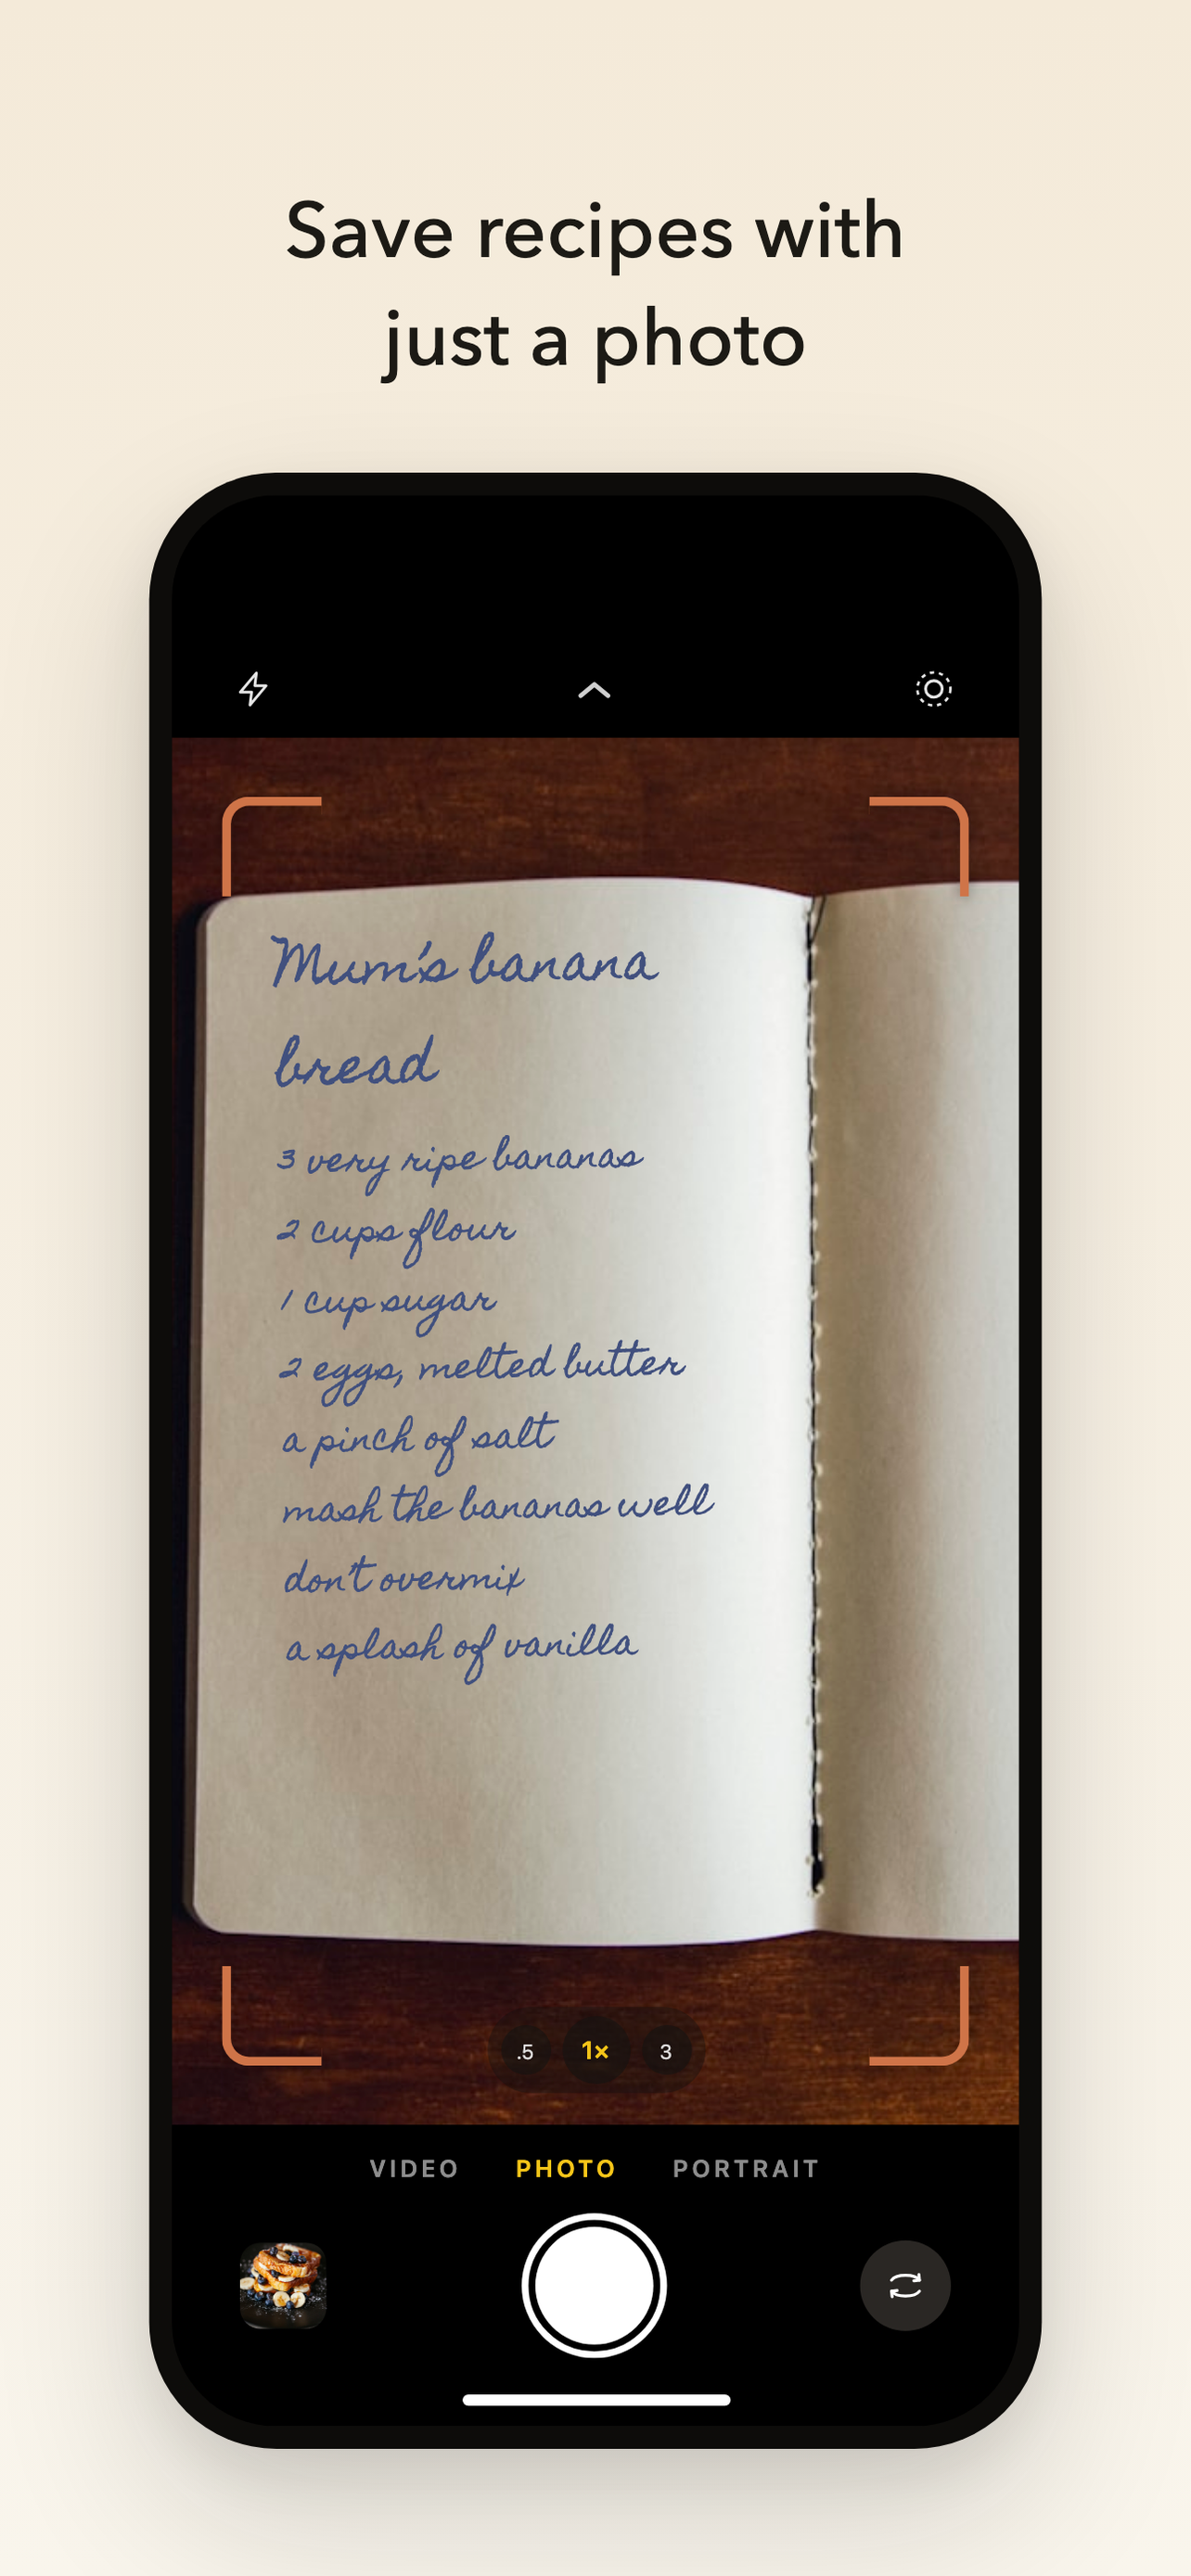 Save recipes with
just a photo
Mum's banana
bread
3 very ripe bananas
2 cups flour
1 cup sugar
2 eggs, melted butter
a pinch of salt
mash the bananas well
don't overmix
a splash of vanilla
.5 1× 3
VIDEO PHOTO PORTRAIT